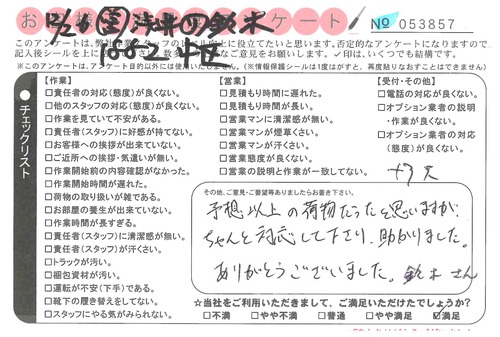 お客様 アンケート
№ 053857
12/29 ㊞ 津井の鈴木
このアンケートは、弊社作業スタッフのレベル向上に役立てたいと思います。否定的なアンケートになりますので
記入後シールを上に
なご意見をお願いします。✓印は、いくつでも結構です。
※このアンケートは、アンケート目的以外には使用いたしません。(※情報保護シールは1度はがすと、再度貼りなおすことはできません)
チェックリスト
【作業】
□責任者の対応(態度)が良くない。
□他のスタッフの対応(態度)が良くない。
□作業を見ていて不安がある。
□責任者(スタッフ)に好感が持てない。
□お客様への挨拶が出来ていない。
□ご近所への挨拶・気遣いが無い。
□作業開始前の内容確認がなかった。
□作業開始時間が遅れた。
□荷物の取り扱いが雑である。
□お部屋の養生が出来ていない。
□作業時間が長すぎる。
□責任者(スタッフ)に清潔感が無い。
□責任者(スタッフ)が汗くさい。
□トラックが汚い。
□梱包資材が汚い。
□運転が不安(下手)である。
□靴下の履き替えをしてない。
□スタッフにやる気がみられない。
【営業】
□見積もり時間に遅れた。
□見積もり時間が長い。
□営業マンに清潔感が無い。
□営業マンが煙草くさい。
□営業マンが汗くさい。
□営業態度が良くない。
□営業の説明と作業が一致してない。
【受付・その他】
□電話の対応が良くない。
□オプション業者の説明
・作業が良くない。
□オプション業者の対応
(態度)が良くない。
その他、ご意見・ご要望等ありましたらお書き下さい。
予想以上の荷物だったと思いますが、
ちゃんと対応して下さり、助かりました。
ありがとうございました。 鈴木さん
☆当社をご利用いただきまして、ご満足いただけたでしょうか?
□不満 □やや不満 □普通 □やや満足 ☑満足